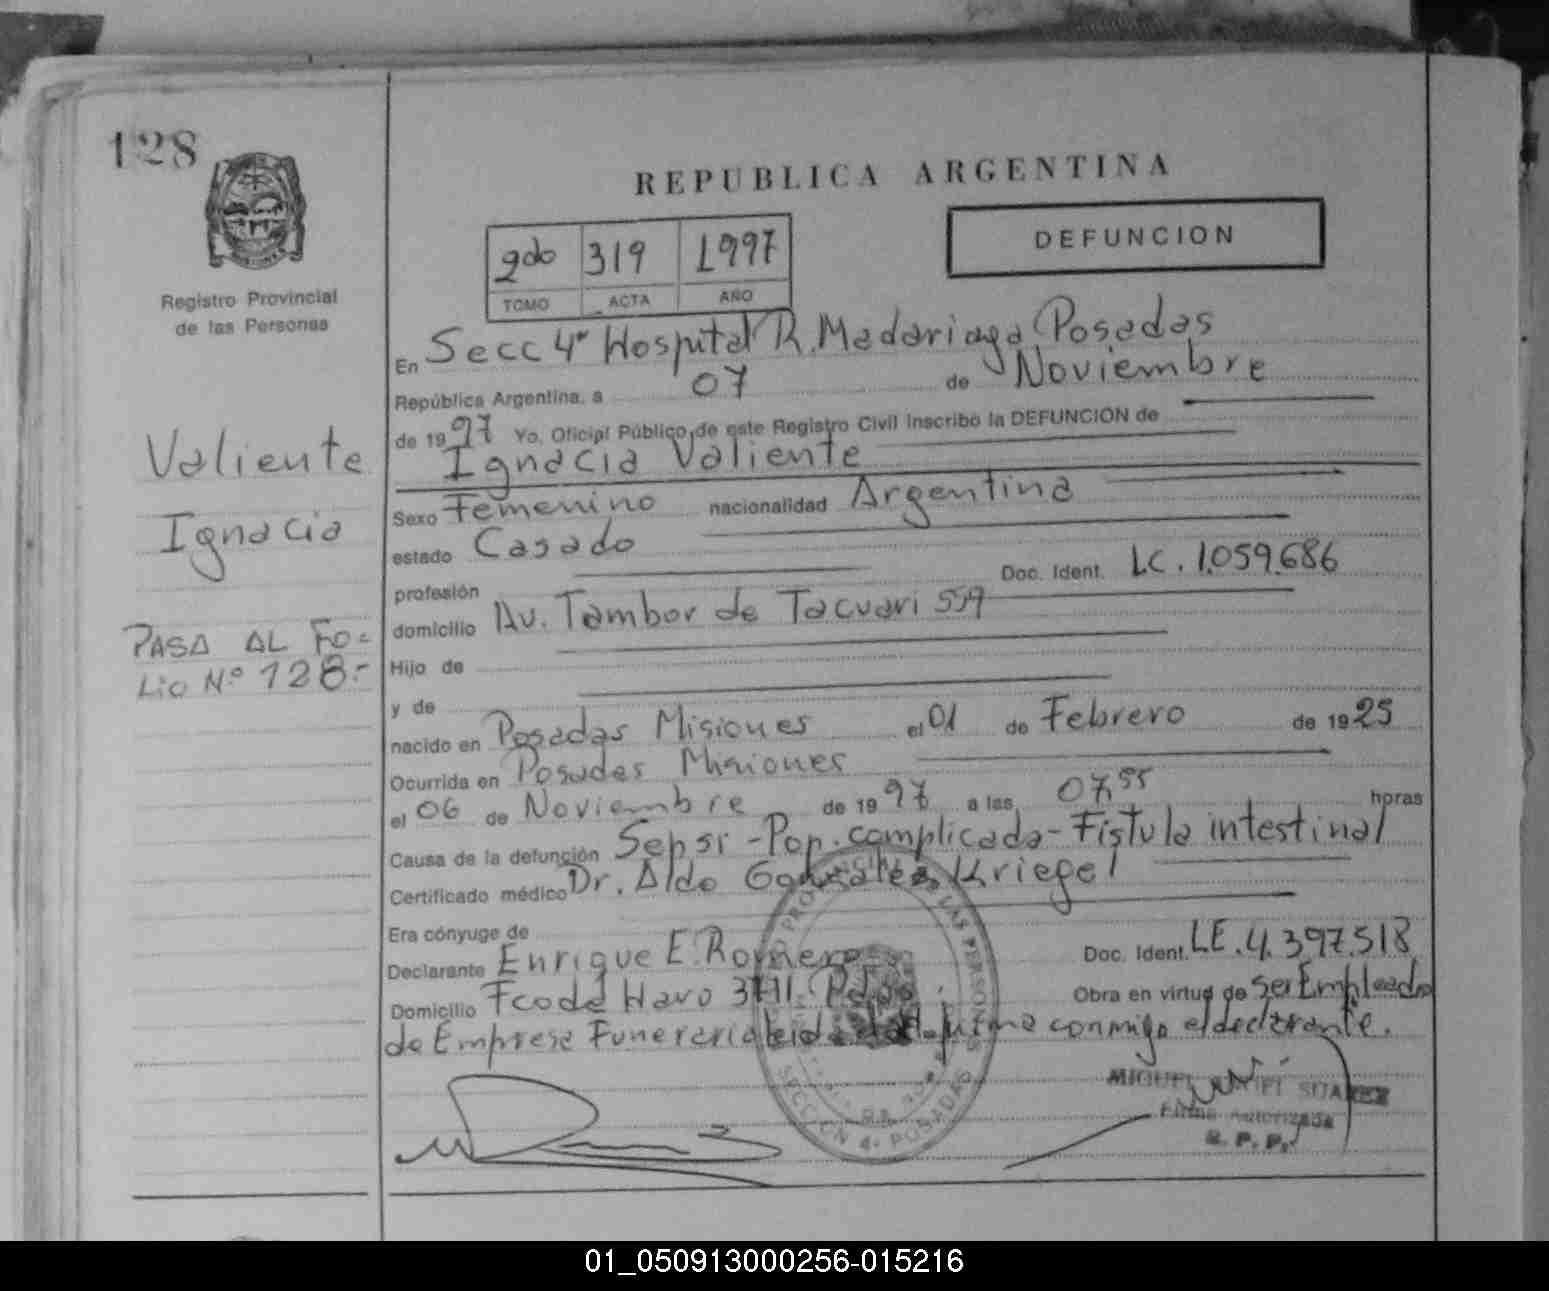 128
REPUBLICA ARGENTINA
DEFUNCION
2do 319 1997
TOMO ACTA AÑO
Registro Provincial
de las Personas
En Secc 4ª Hospital R. Madariaga Posadas
República Argentina, a 07 de Noviembre
de 1997 Yo, Oficial Público de este Registro Civil inscribo la DEFUNCION de
Ignacia Valiente
Valiente
Ignacia
PASA AL FO=
LIO Nº 128.-
Sexo Femenino nacionalidad Argentina
estado Casado
profesión Doc. Ident. LC. 1.059.686
domicilio Av. Tambor de Tacuari 559
Hijo de
y de
nacido en Posadas Misiones el 01 de Febrero de 1925
Ocurrida en Posadas Misiones
el 06 de Noviembre de 1997 a las 07,55 horas
Causa de la defunción Sepsi - Pop. complicada - Fístula intestinal
Certificado médico Dr. Aldo Gonzalez Kriegel
Era cónyuge de
Declarante Enrique E. Romero Doc. Ident. LE. 4.397.518
Domicilio Fco de Haro 3711 Pdas. Obra en virtud de ser Empleado
de Empresa Funeraria leida el firma conmigo el declarante.
PROVINCIAL DE LAS PERSONAS
SECCION 4ª POSADAS
R.A.
MIGUEL SUAREZ
FIRMA AUTORIZADA
R. P. P.
01_050913000256-015216